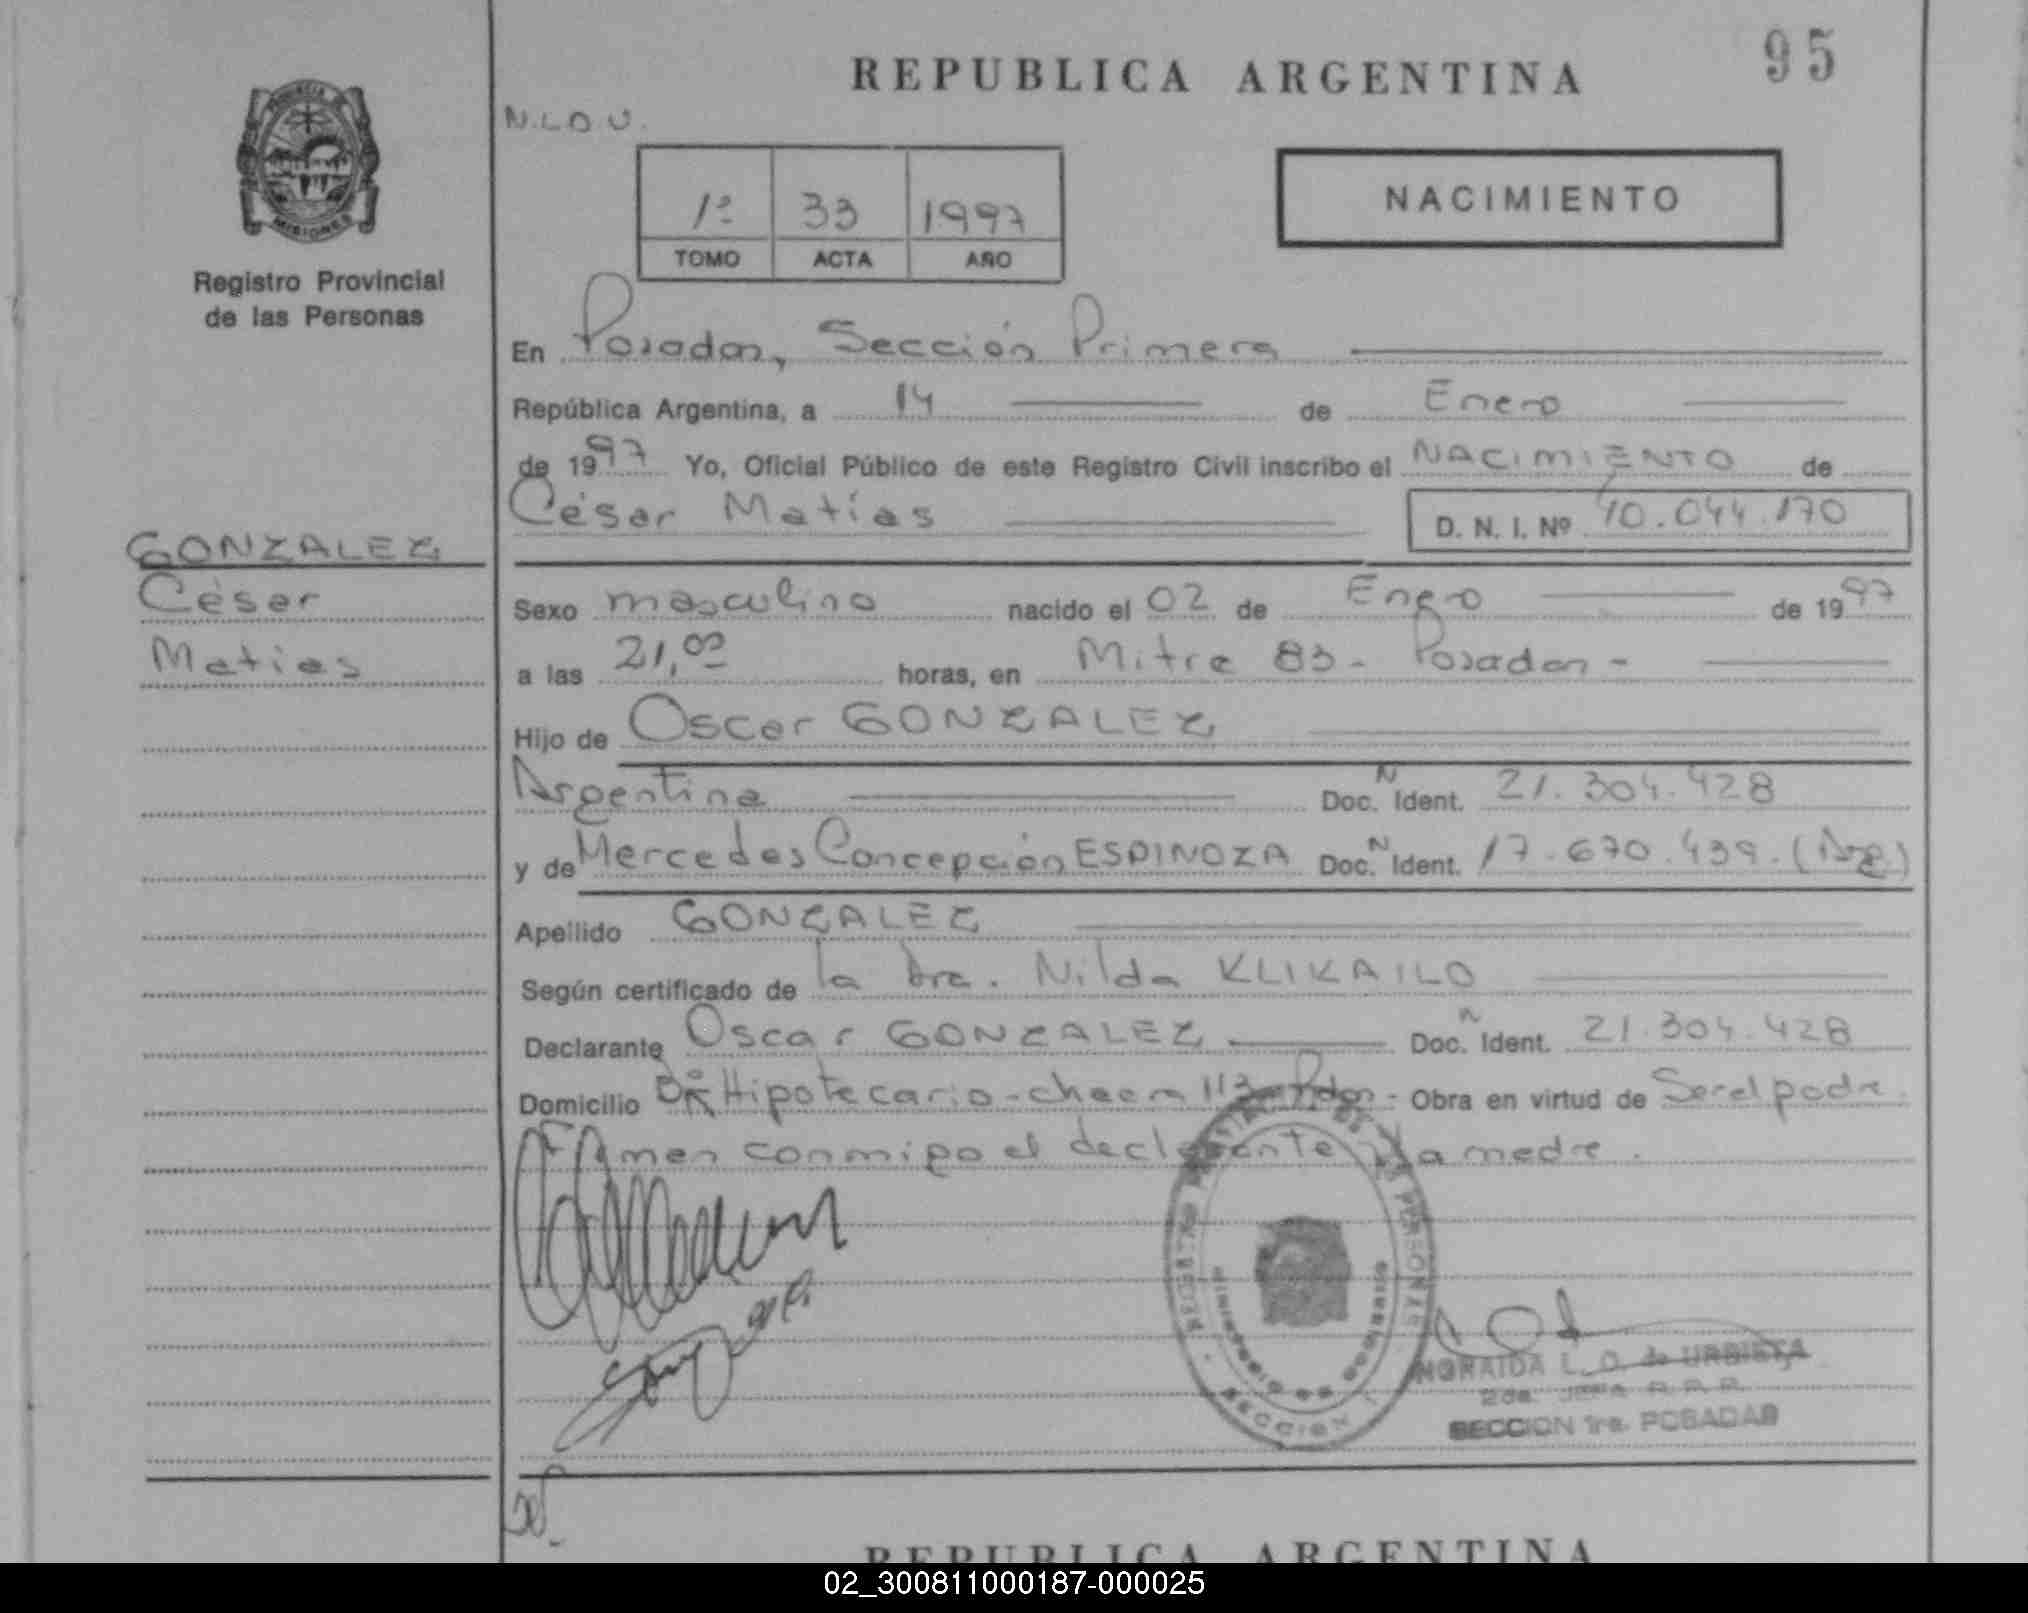 REPUBLICA ARGENTINA
95
PROVINCIA DE
MISIONES
Registro Provincial
de las Personas
N.L.O.U.
1º 33 1997
TOMO ACTA AÑO
NACIMIENTO
En Posadas, Sección Primera
República Argentina, a 14 de Enero
de 1997 Yo, Oficial Público de este Registro Civil inscribo el NACIMIENTO de
César Matías D. N. I. Nº 40.044.170
GONZALEZ
César
Matías
Sexo masculino nacido el 02 de Enero de 1997
a las 21,00 horas, en Mitre 83 - Posadas -
Hijo de Oscar GONZALEZ
Argentina Doc. N Ident. 21.304.428
y de Mercedes Concepción ESPINOZA Doc. N Ident. 17.670.439. (Arg.)
Apellido GONZALEZ
Según certificado de la Dra. Nilda KLIKAILO
Declarante Oscar GONZALEZ Doc. N Ident. 21.304.428
Domicilio Bº Hipotecario - chacra 113 - Pdas - Obra en virtud de Ser el padre.
Firman conmigo el declarante y la madre.
SECCION 1
NORAIDA L. O. de URBIETA
2da. JEFA R. P. P.
SECCION 1ra. POSADAS
REPUBLICA ARGENTINA
02_300811000187-000025